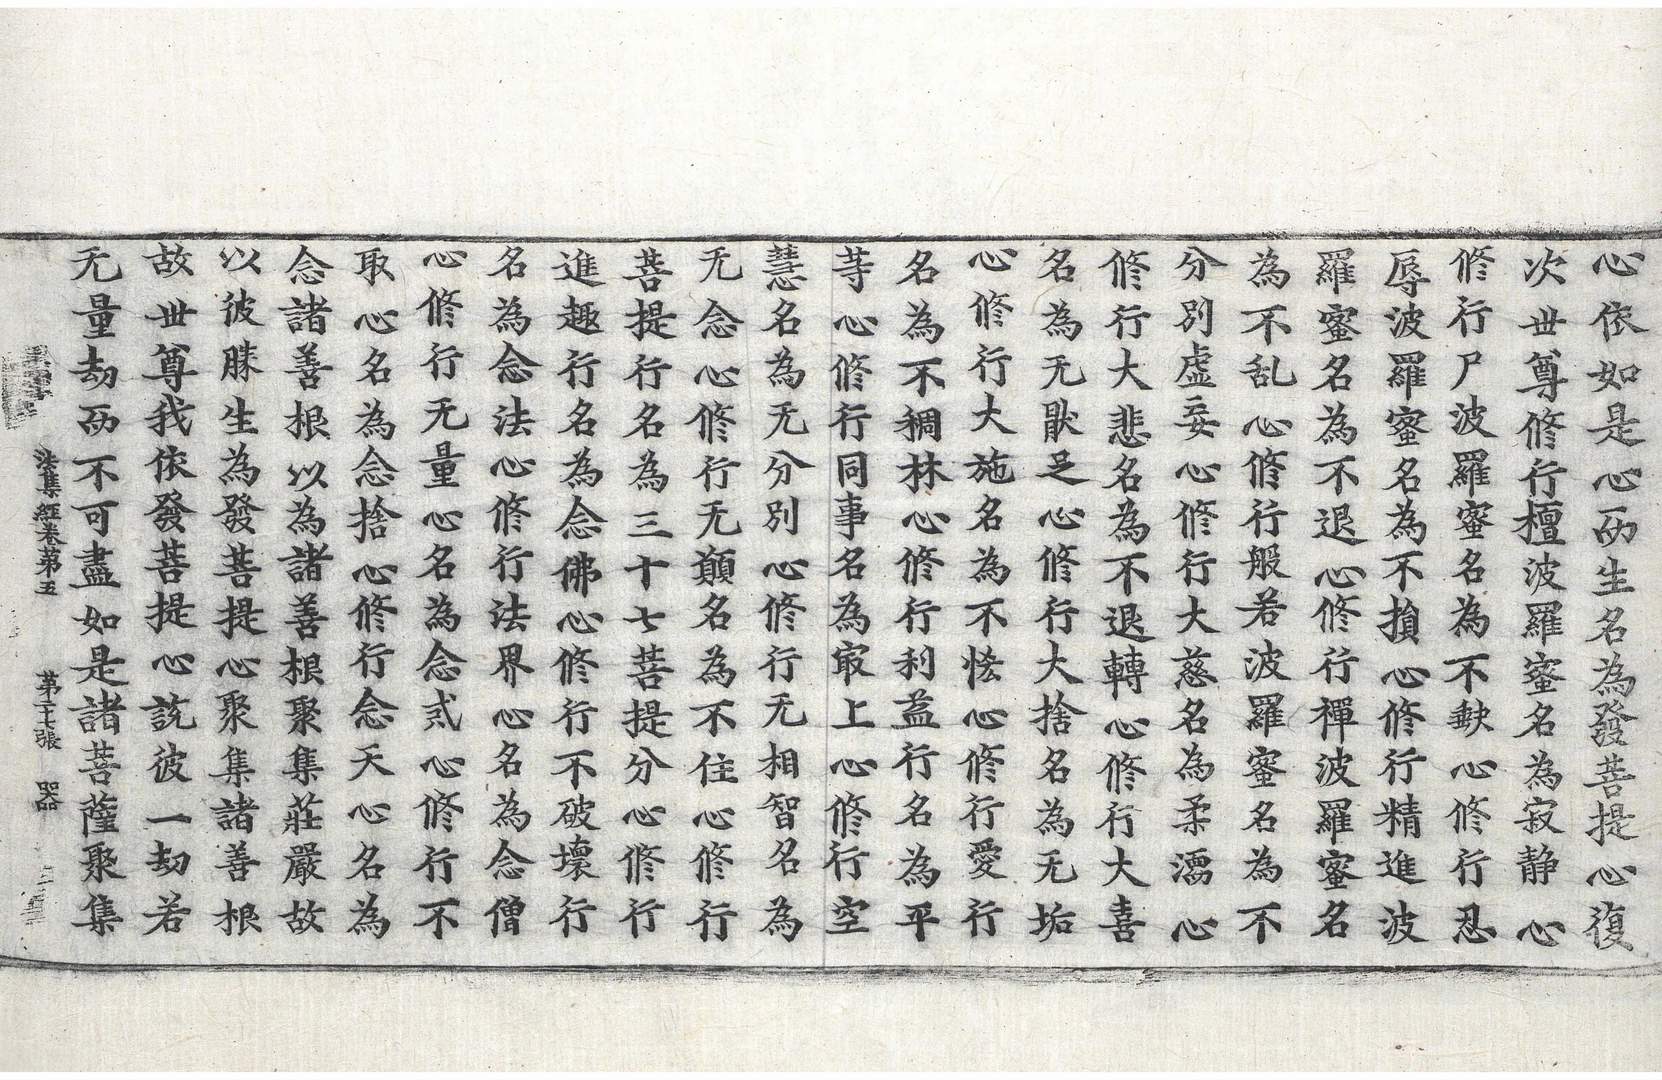 心依如是心而生名為發菩提心復
次世尊修行檀波羅蜜名為寂静心
修行尸波羅蜜名為不缺心修行忍
辱波羅蜜名為不損心修行精進波
羅蜜名為不退心修行禪波羅蜜名
為不乱心修行般若波羅蜜名為不
分別虛妄心修行大慈名為柔濡心
修行大悲名為不退轉心修行大喜
名為无猒足心修行大捨名為无垢
心修行大施名為不恡心修行愛行
名為不稠林心修行利益行名為平
等心修行同事名為㝡上心修行空
慧名為无分別心修行无相智名為
无念心修行无願名為不住心修行
菩提行名為三十七菩提分心修行
進趣行名為念佛心修行不破壞行
名為念法心修行法界心名為念僧
心修行无量心名為念戒心修行不
取心名為念捨心修行念天心名為
念諸善根以為諸善根聚集莊嚴故
以彼勝生為發菩提心聚集諸善根
故世尊我依發菩提心說彼一劫若
无量劫而不可盡如是諸菩薩聚集
法集經卷第五　第二十七張　器